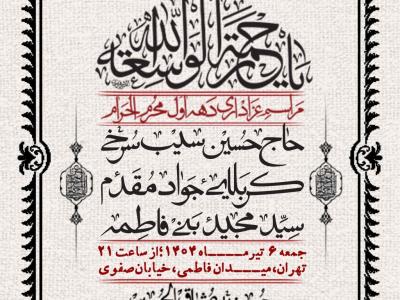 یا رحمة الله الواسعة
مراسم عزاداری دهه اول محرم الحرام
حاج حسین سیب سرخی
کربلایی جواد مقدم
سید مجید بنی فاطمه
جمعه ۶ تیر مـــاه ۱۴۰۴؛ از ساعت ۲۱
تهران، میـــدان فاطمی، خیابان صفوی